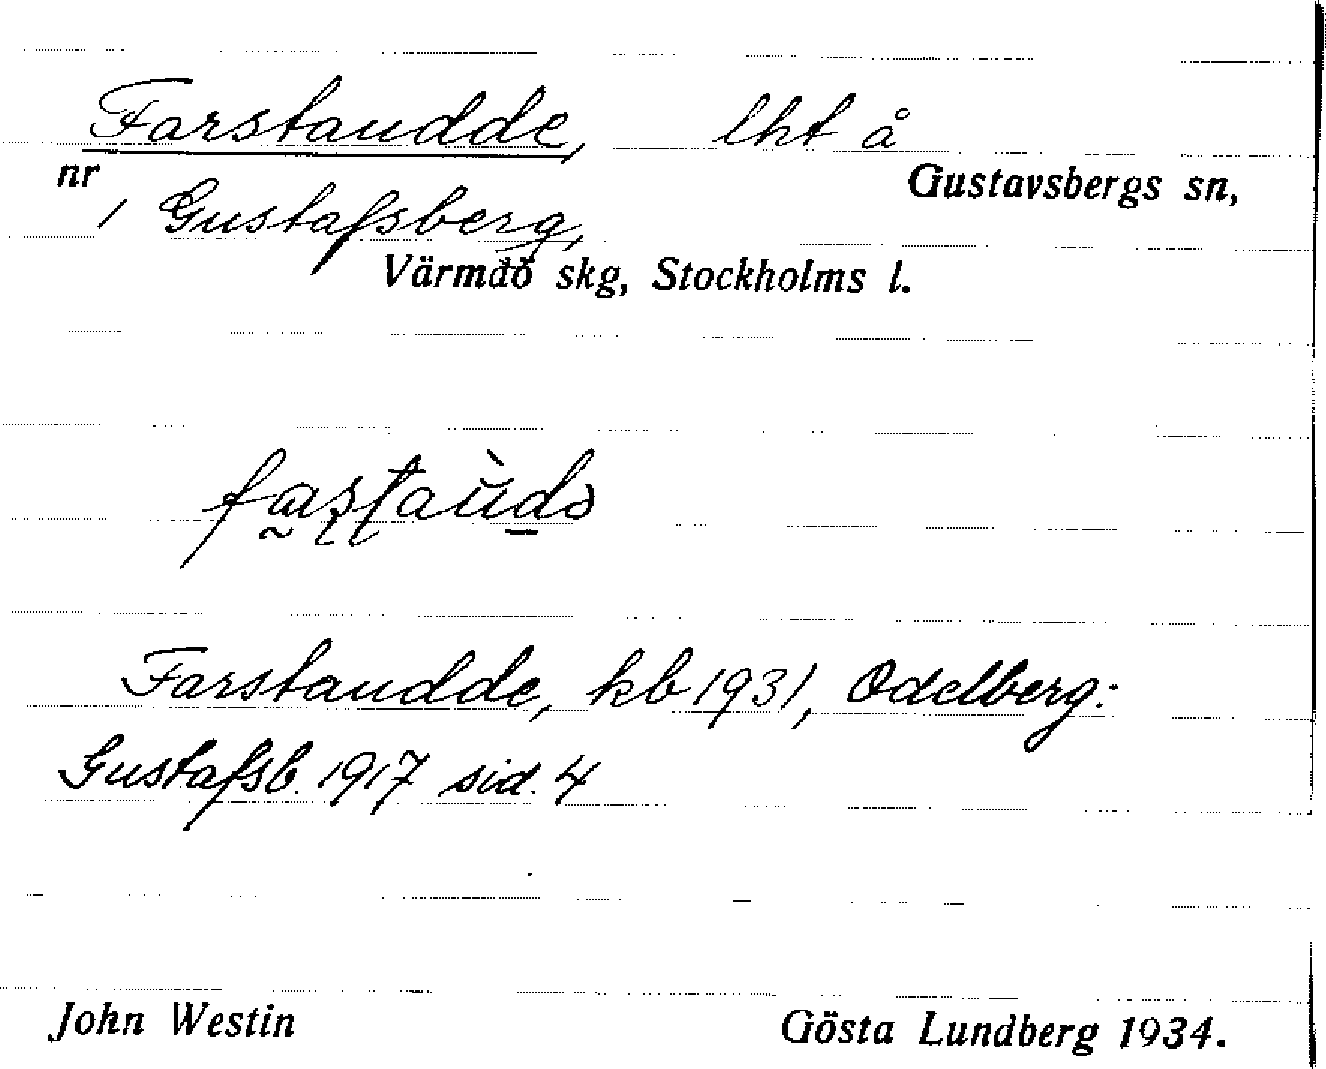 Farstaudde, lht å
nr Gustavsbergs sn,
1 Gustafsberg,
Värmdö skg, Stockholms l.
Farstaudde, kb 1931, Odelberg:
Gustafsb. 1917 sid. 4
John Westin Gösta Lundberg 1934.